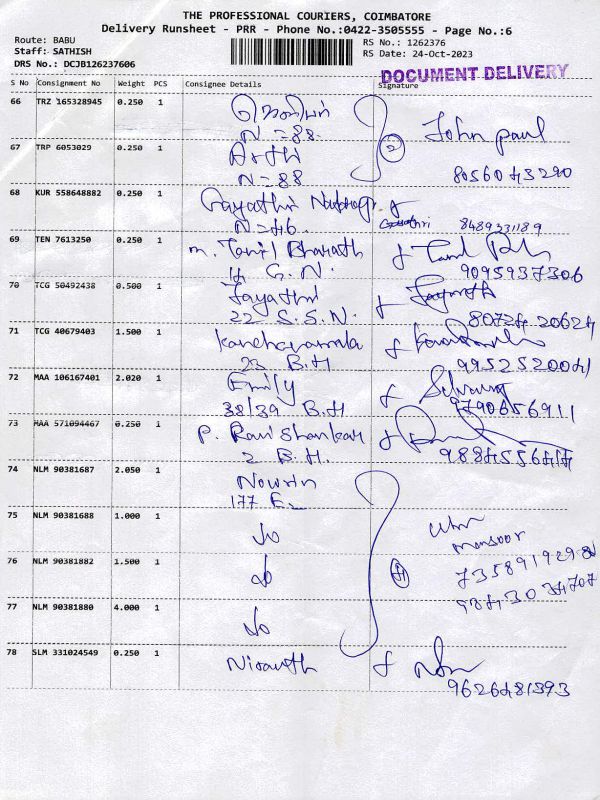 THE PROFESSIONAL COURIERS, COIMBATORE
Delivery Runsheet - PRR - Phone No.:0422-3505555 - Page No.:6
Route: BABU
Staff: SATHISH
DRS No.: DCJB126237606
RS No.: 1262376
RS Date: 24-Oct-2023
DOCUMENT DELIVERY
S No Consignment No Weight PCS Consignee Details Signature
66 TRZ 165328945 0.250 1
N = 88 John paul
67 TRP 6053029 0.250 1 2
N = 88 8056043290
68 KUR 558648882 0.250 1 Gayathri
N = 46 8489331189
69 TEN 7613250 0.250 1 M. Tamil Bharath
14 G. N. 9095937306
70 TCG 50492438 0.500 1 Jayathri
22 S. S. N. 8072420624
71 TCG 40679403 1.500 1 Kanchanamala
23 B.H 9952520041
72 MAA 106167401 2.020 1 Emily
38/39 B.H 9790656911
73 MAA 571094467 0.250 1 P. Ravi Shankar
2 B.H.
74 NLM 90381687 2.050 1
177 E
75 NLM 90381688 1.000 1 do
Mansoor
76 NLM 90381882 1.500 1 do 4
77 NLM 90381880 4.000 1 do
78 SLM 331024549 0.250 1 Nisanth
9626481393